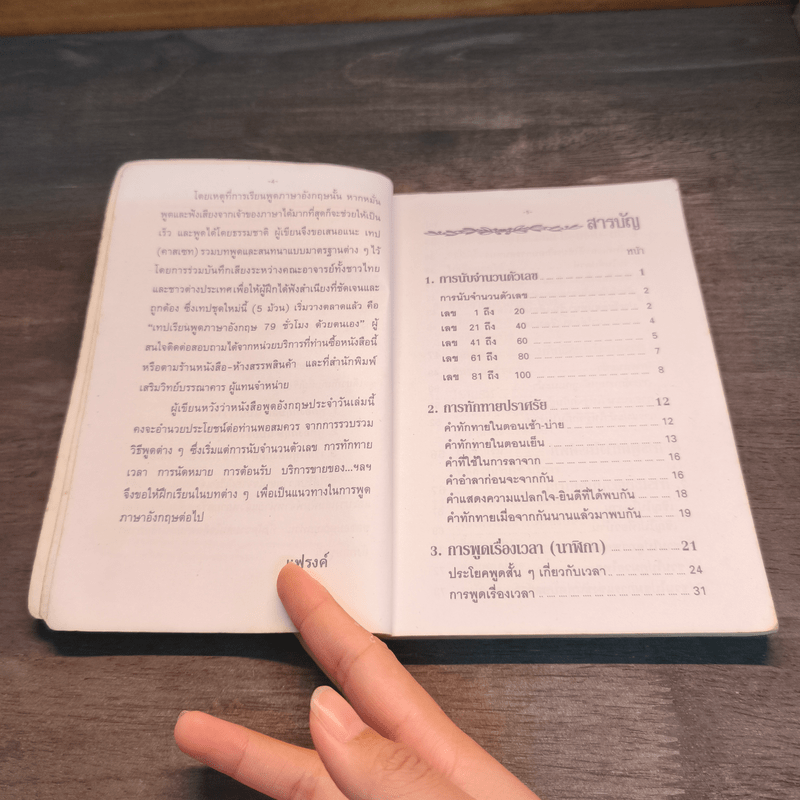 โดยเหตุที่การเรียนพูดภาษาอังกฤษนั้น หากหมั่น
พูดและฟังเสียงจากเจ้าของภาษาได้มากที่สุดก็จะช่วยให้เป็น
เร็ว และพูดได้โดยธรรมชาติ ผู้เขียนจึงขอเสนอแนะ เทป
(คาสเซท) รวมบทพูดและสนทนาแบบมาตรฐานต่าง ๆ ไว้
โดยการร่วมบันทึกเสียงระหว่างคณะอาจารย์ทั้งชาวไทย
และชาวต่างประเทศเพื่อให้ผู้ฝึกได้ฟังสำเนียงที่ชัดเจนและ
ถูกต้อง ซึ่งเทปชุดใหม่นี้ (5 ม้วน) เริ่มวางตลาดแล้ว คือ
"เทปเรียนพูดภาษาอังกฤษ 79 ชั่วโมง ด้วยตนเอง" ผู้
สนใจติดต่อสอบถามได้จากหน่วยบริการที่ท่านซื้อหนังสือนี้
หรือตามร้านหนังสือ-ห้างสรรพสินค้า และที่สำนักพิมพ์
เสริมวิทย์บรรณาคาร ผู้แทนจำหน่าย
ผู้เขียนหวังว่าหนังสือพูดอังกฤษประจำวันเล่มนี้
คงจะอำนวยประโยชน์ต่อท่านพอสมควร จากการรวบรวม
วิธีพูดต่าง ๆ ซึ่งเริ่มแต่การนับจำนวนตัวเลข การทักทาย
เวลา การนัดหมาย การต้อนรับ บริการขายของ...ฯลฯ
จึงขอให้ฝึกเรียนในบทต่าง ๆ เพื่อเป็นแนวทางในการพูด
ภาษาอังกฤษต่อไป
แฟรงค์
สารบัญ
หน้า
1. การนับจำนวนตัวเลข 1
การนับจำนวนตัวเลข 2
เลข 1 ถึง 20 2
เลข 21 ถึง 40 4
เลข 41 ถึง 60 5
เลข 61 ถึง 80 7
เลข 81 ถึง 100 8
2. การทักทายปราศรัย 12
คำทักทายในตอนเช้า-บ่าย 12
คำทักทายในตอนเย็น 13
คำที่ใช้ในการลาจาก 16
คำอำลาก่อนจะจากกัน 16
คำแสดงความแปลกใจ-ยินดีที่ได้พบกัน 18
คำทักทายเมื่อจากกันนานแล้วมาพบกัน 19
3. การพูดเรื่องเวลา (นาฬิกา) 21
ประโยคพูดสั้น ๆ เกี่ยวกับเวลา 24
การพูดเรื่องเวลา 31